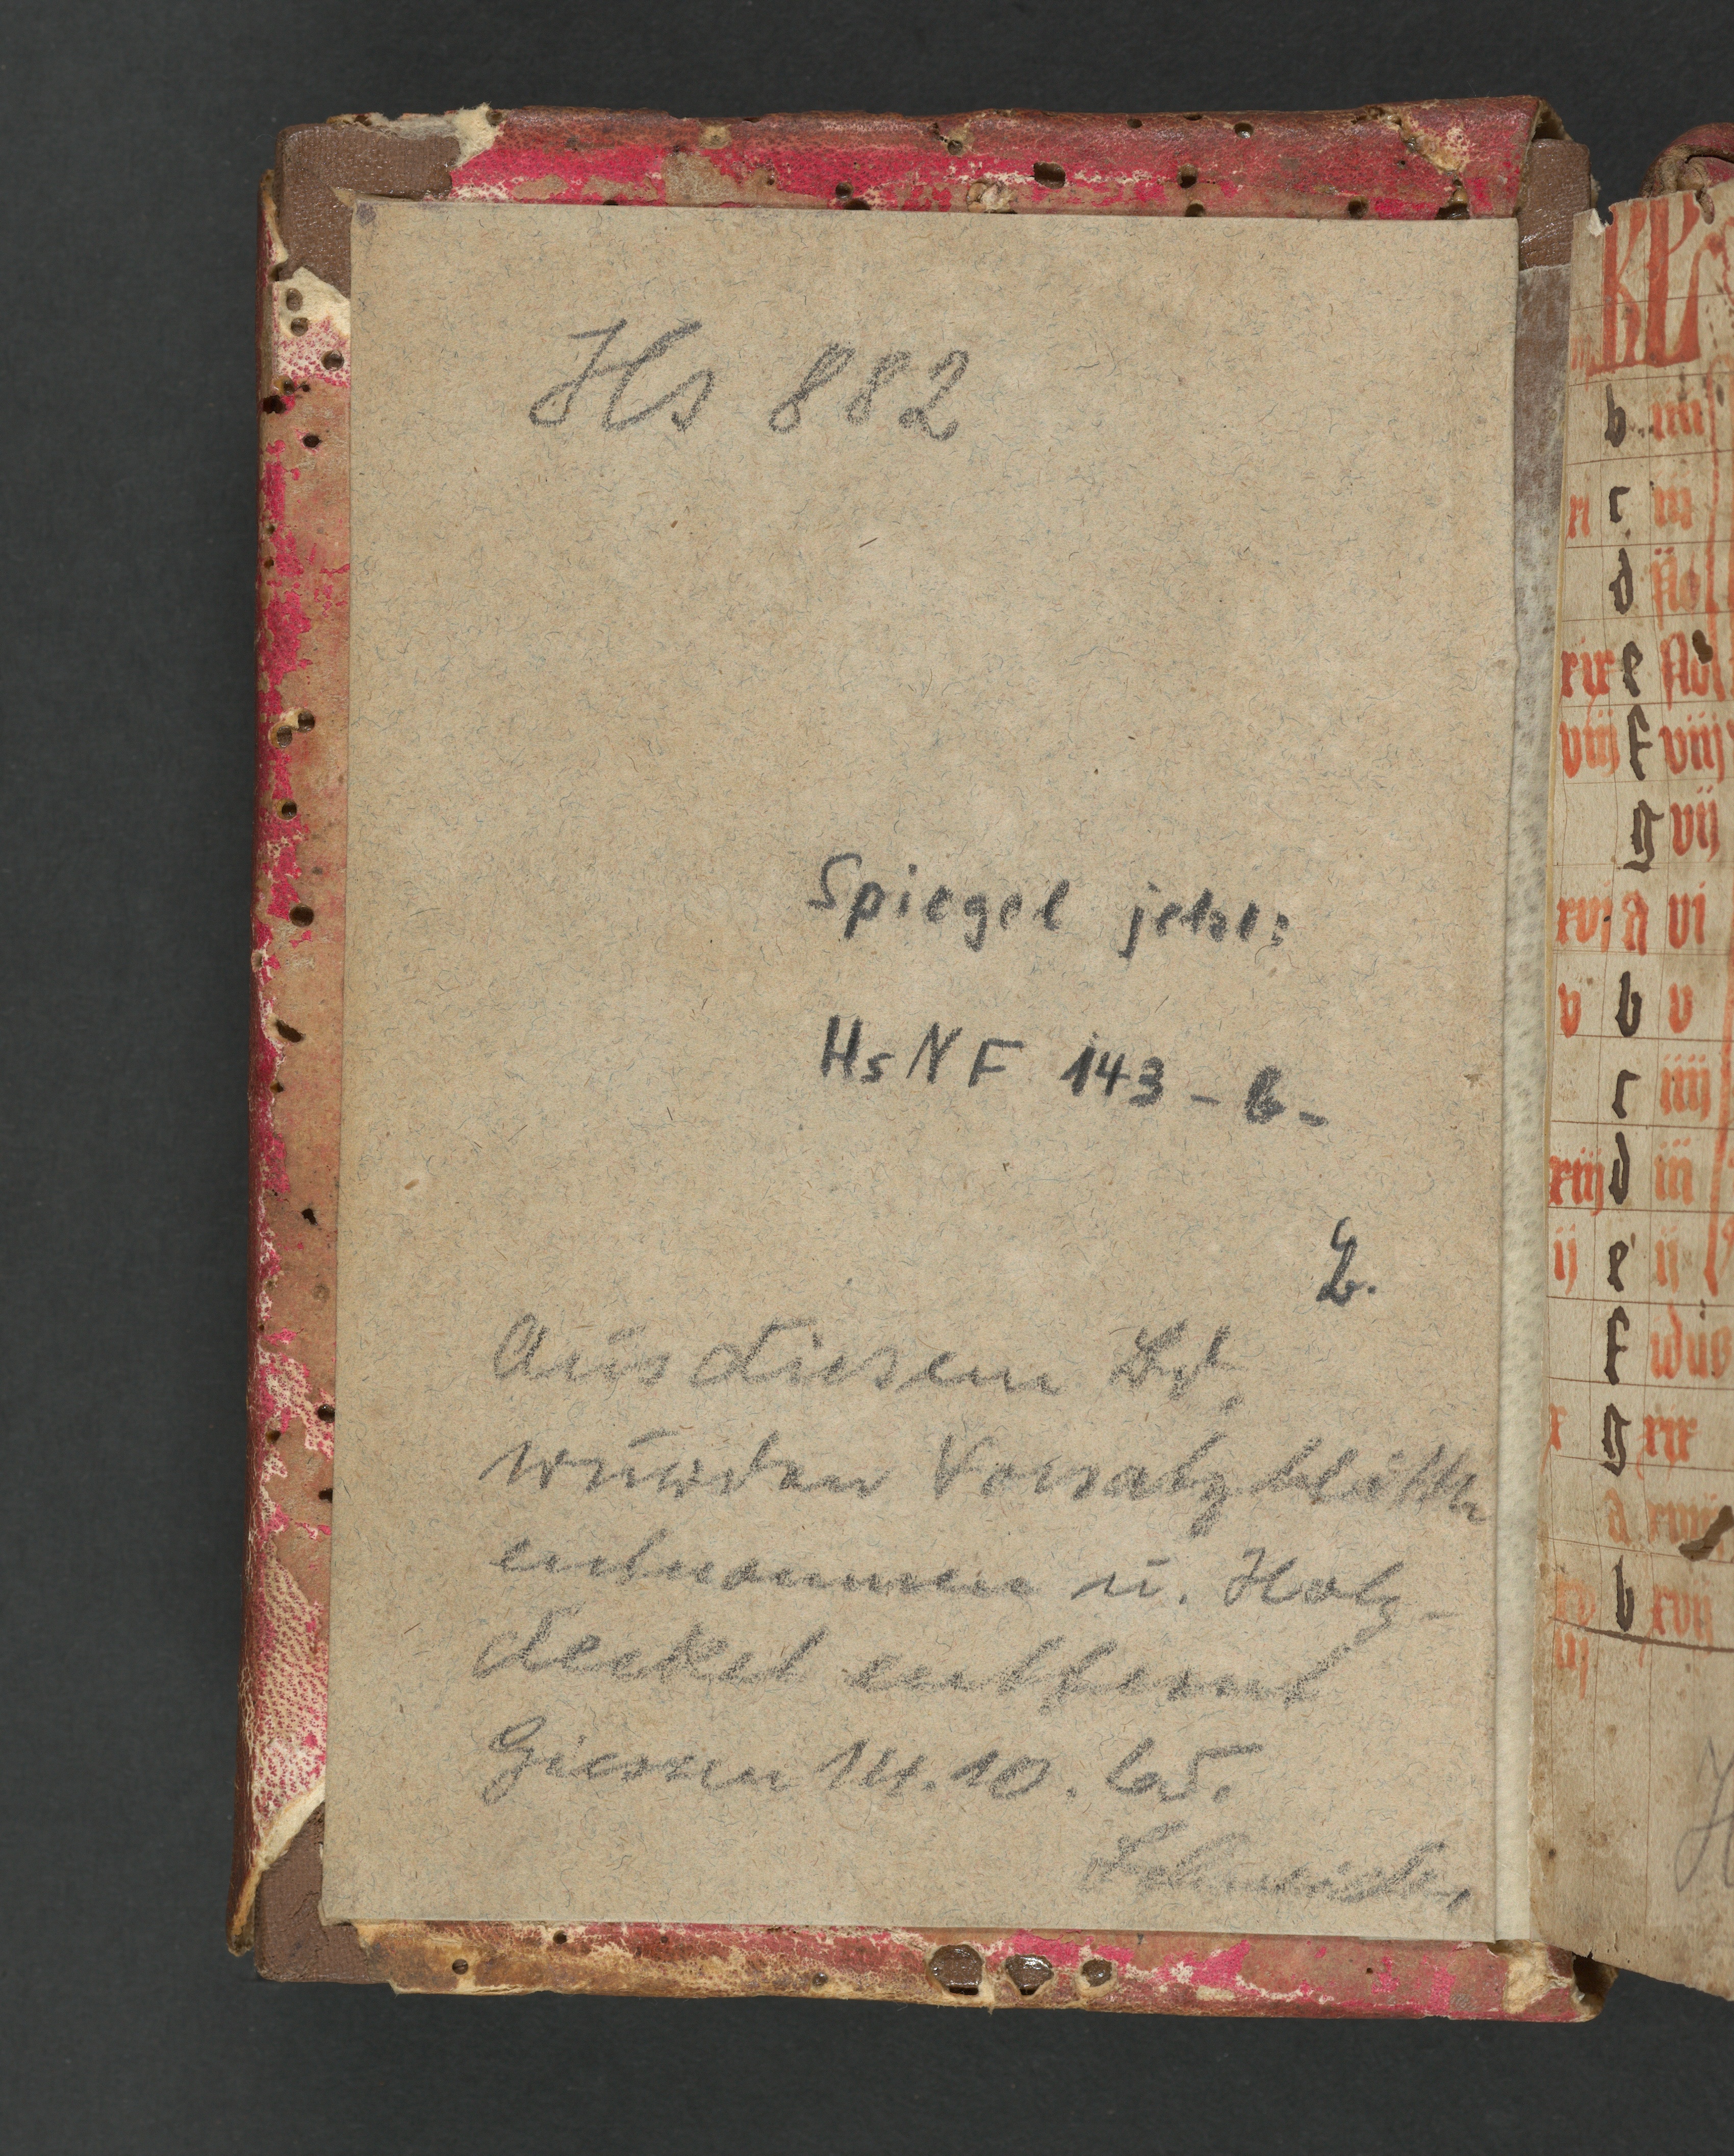 Hs 882
Spiegel jetzt:
Hs NF 143 - b -
Aus diesem Bd.
wurden Vorsatzblätter
entnommen u. Holz-
deckel entfernt
Giessen 14.10.
KL
b iiii
xi c iii
d ii Nō
xix e
viii f viij
g vij
xvi A vi
v b v
c iiij
xiij d iij
ij e ij
f idus
x g xix
A xviij
b xvij